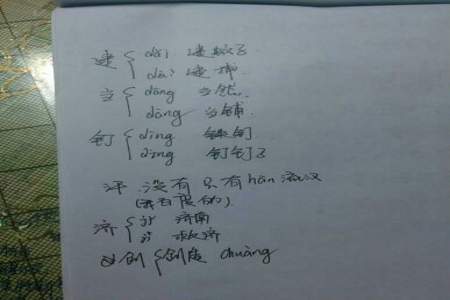 逮 dǎi 逮蚊子
dài 逮捕
当 dāng 当然
dàng 当铺
钉 dīng 铁钉
dìng 钉钉子
没有 只有hàn 流汉
济 jǐ 济南
jì 救济
创 chuàng